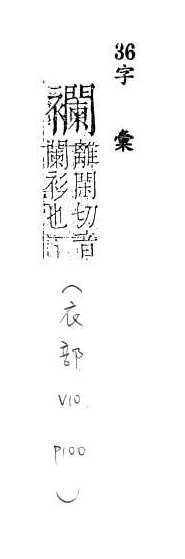 36字彙
襴離閑切音
闌衫也
（衣部 V10. P100）